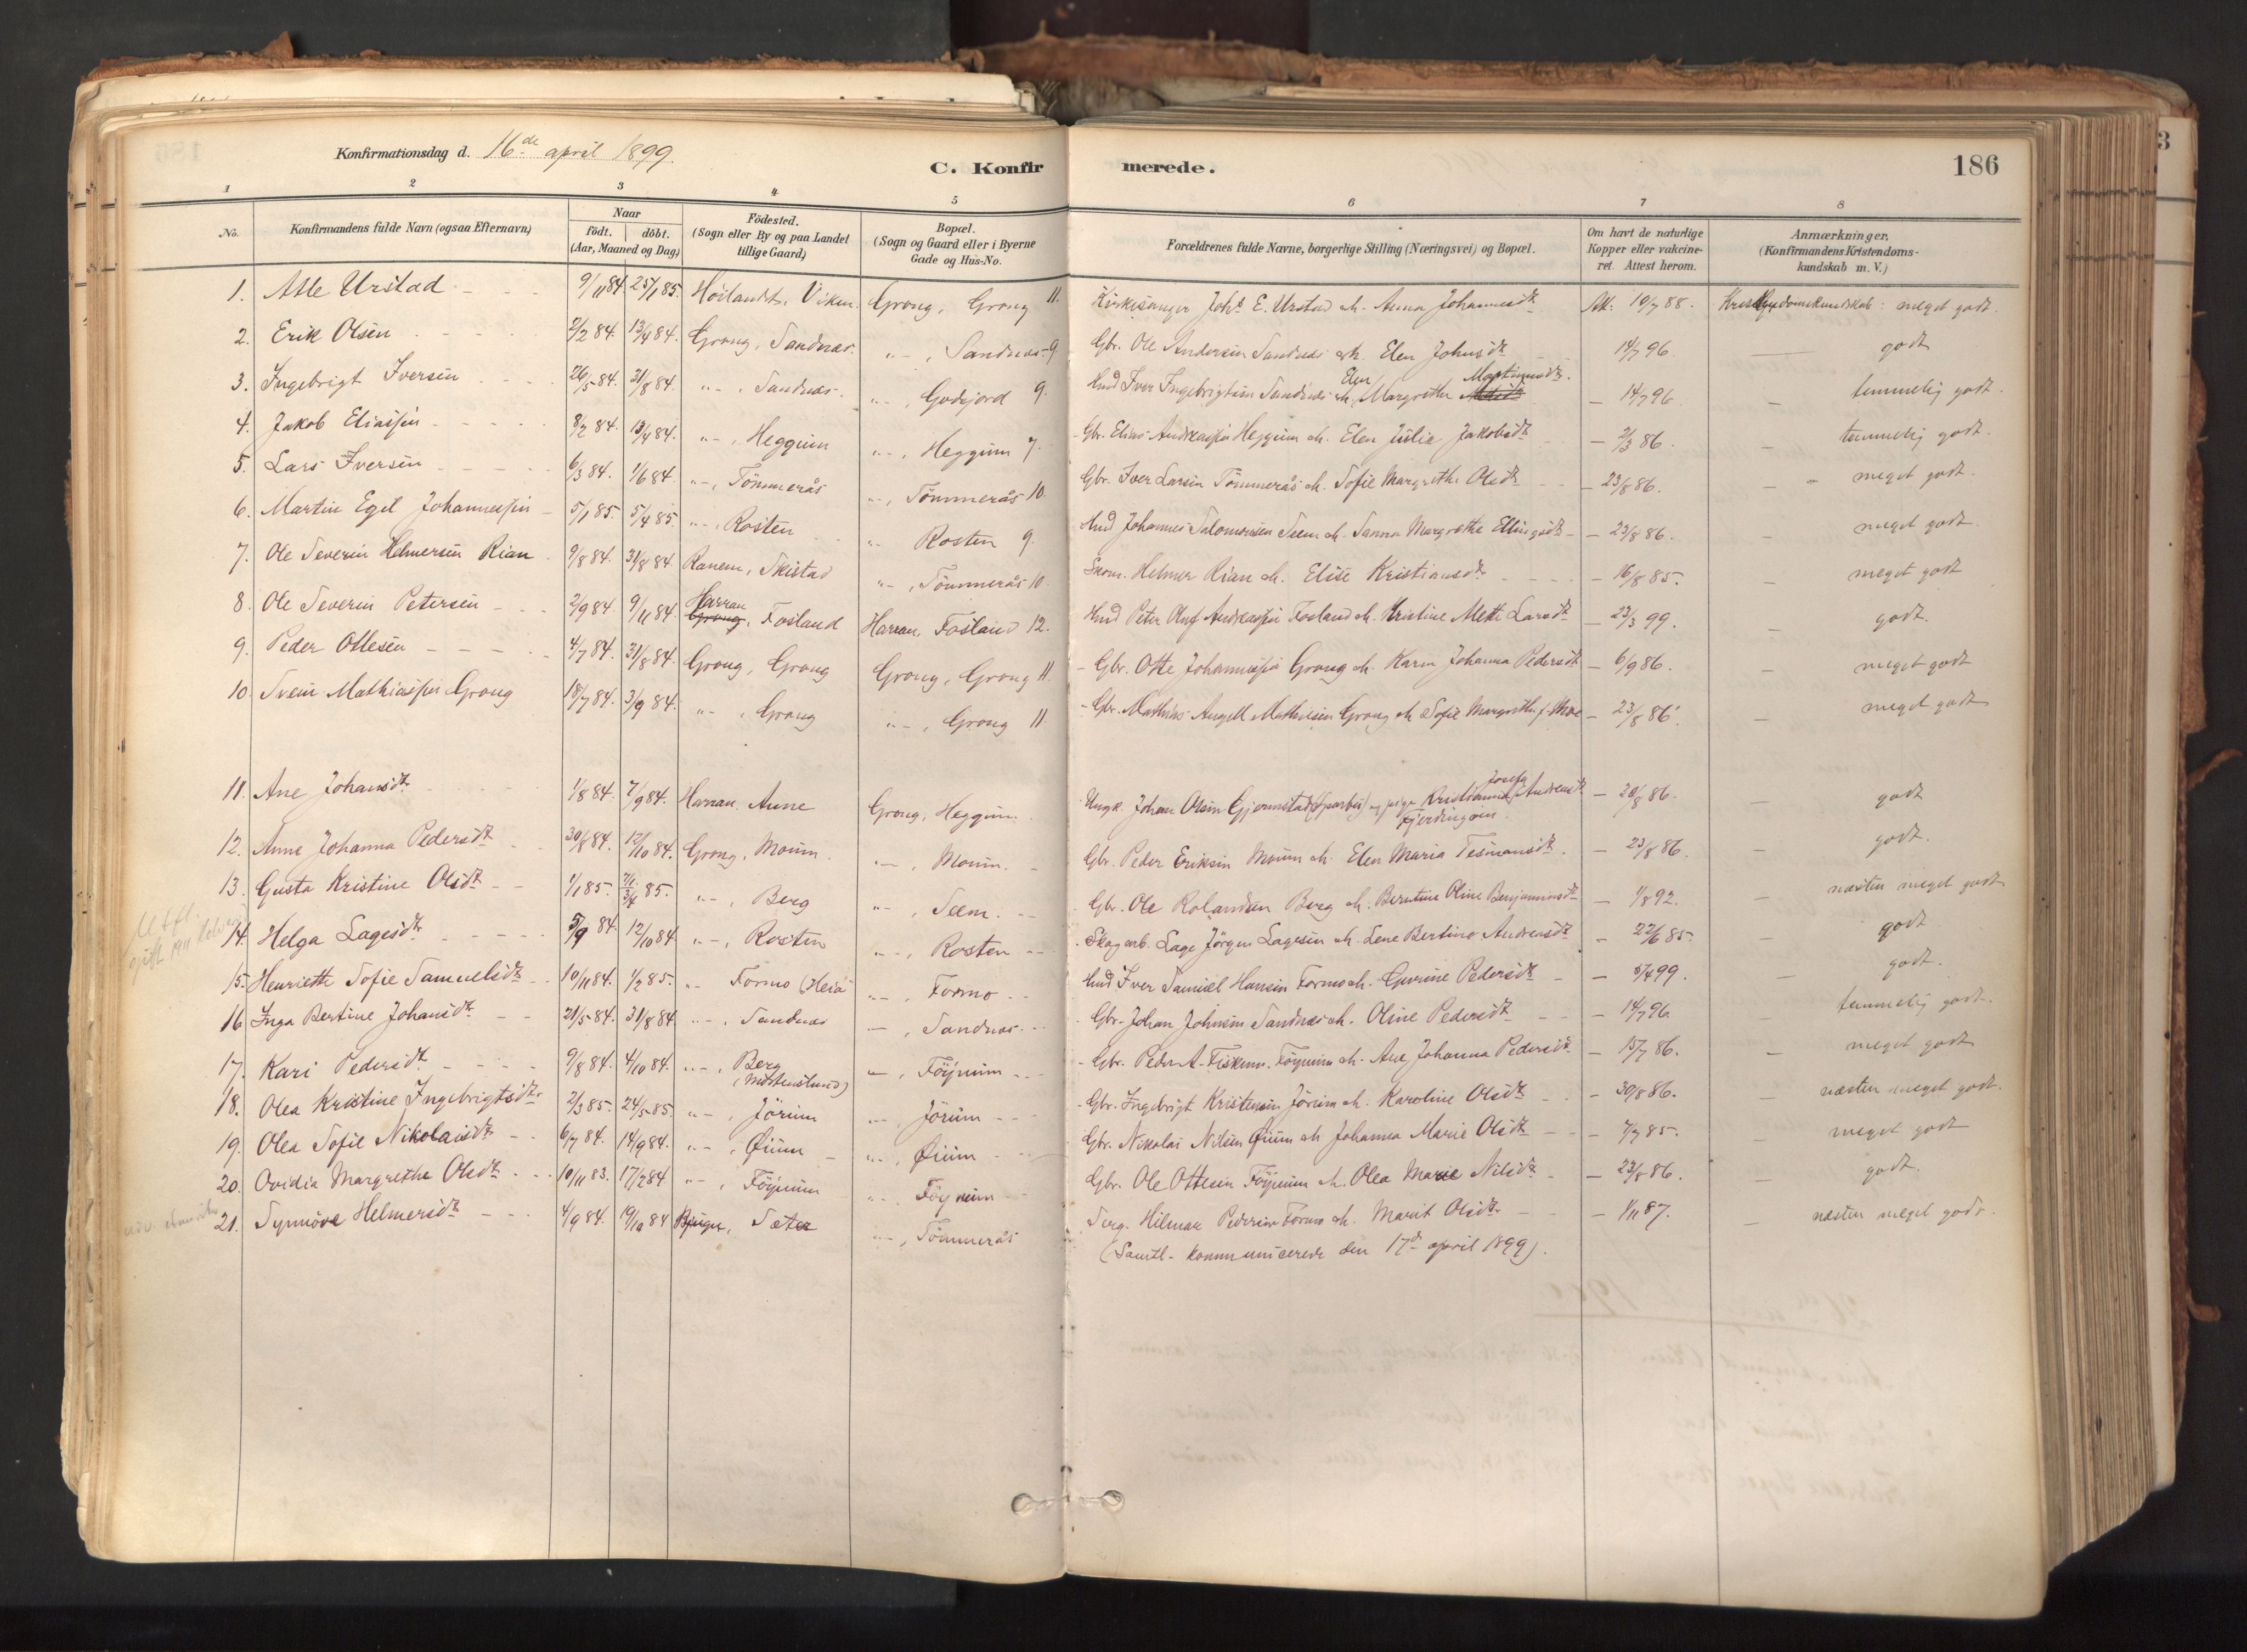 Konfirmationsdag d. 16de april 1899.
C. Konfirmerede.
186
1 2 3 4 5 6 7 8
No.
Konfirmandens fulde Navn (ogsaa Efternavn)
Naar
födt. döbt.
(Aar, Maaned og Dag)
Födested.
(Sogn eller By og paa Landet
tillige Gaard)
Bopæl.
(Sogn og Gaard eller i Byerne
Gade og Hus-No.
Forældrenes fulde Navne, borgerlige Stilling (Næringsvei) og Bopæl.
Om havt de naturlige
Kopper eller vakcine-
ret. Attest herom.
Anmærkninger,
(Konfirmandens Kristendoms-
kundskab m. V.)
1. Atle Urstad 9/11 84. 25/1 85. Höilandet, Viken. Grong, Grong 11. Kirkesanger Johs E. Urstad og Anna Johannesdt At: 10/7 88. Kristendomskundskab: meget godt.
2. Erik Olsen 2/2 84. 13/4 84. Grong, Sandnæs. "-, Sandnæs 9 Gbr. Ole Andersen Sandnæs og h. Elen Johnsdt 14/7 96. godt
3. Ingebrigt Iversen 26/5 84. 31/8 84. "-, Sandnæs. "-, Godejord 9. Hmd Iver Ingebrigtsen Sandnæs og h. Elen Margrethe Martinusdt. - 14/7 96. - temmelig godt.
4. Jakob Eliassen 8/2 84. 13/4 84. "-, Heggum "-, Heggum 7. Gbr. Elias Andreassen Heggum og h. Elen Julie Jakobsdt - 2/3 86. - temmelig godt.
5. Lars Iversen 6/3 84. 1/6 84. "-, Tömmerås "-, Tömmerås 10. Gbr. Iver Larsen Tömmerås og h. Sofie Margrethe Olsdt - 23/8 86. - meget godt.
6. Martin Egil Johannessen 5/1 85. 5/4 85. "-, Rosten "- Rosten 9. Hmd Johannes Salomonsen Seem og h. Sanna Margrethe Ellingsdt - 23/8 86. - meget godt.
7. Ole Severin Helmersen Rian 9/8 84. 31/8 84. Ranem, Skistad "-, Tömmerås 10. Skom. Helmer Rian og h. Elise Kristiansdt - 16/8 85. - meget godt
8. Ole Severin Petersen 2/9 84. 9/11 84. Harran Grong, Fosland Harran, Fosland 12. Hmd Peter Oluf Andreassen Fosland og h. Kristine Mette Larsdt - 23/3 99. - godt.
9. Peder Ottesen 4/7 84. 31/8 84. Grong, Grong Grong, Grong 11. Gbr. Otte Johannessen Grong og h. Karen Johanna Pedersdt - 6/9 86. - meget godt
10. Svein Mathiassen Grong 18/7 84. 3/9 84. "-, Grong "-, Grong 11 Gbr. Mathias Angell Mathiesen Grong og h. Sofie Margrethe f. Moe - 23/8 86. - meget godt
11. Ane Johansdt 1/8 84. 7/9 84. Harran. Aune Grong, Heggum. Ungk. Johan Olsen Gjermstad og pige Kristianna Josefa Andreasdt Fjerdingøen. - 20/8 86. - godt
12. Anne Johanna Pedersdt 30/8 84. 12/10 84. Grong, Moum. "-, Moum. Gbr. Peder Eriksen Moum og h. Elen Maria Tesmansdt. - 23/8 86. - godt.
13. Gusta Kristine Olsdt 1/1 85. 7/1 3/4 85. "-, Berg "-, Seem. Gbr. Ole Rolandsen Berg og h. Berntine Oline Benjaminsdt - 1/8 92. - næsten meget godt
Utfl.
gift 1911
14. Helga Lagesdt 5/9 84. 12/10 84. "-, Rosten "-, Rosten Skogarb. Lage Jörgen Lagesen og h. Lene Bertine Andreasdt - 22/6 85. - godt
15. Henriette Sofie Samuelsdt 10/11 84. 1/2 85. "- Formo (Heia "-, Formo Hmd Iver Samuel Hansen Formo og h. Gurine Pedersdt - 5/4 99. - godt.
16. Inga Bertine Johansdt 21/5 84. 31/8 84. "-, Sandnæs -, Sandnæs. Gbr. Johan Johnsen Sandnæs og h. Oline Pedersdt - 14/7 96. temmelig godt.
17. Kari Pedersdt 9/8 84. 4/10 84. "-, Berg (Mortenslund) -, Föynum Gbr. Peder A. Fiskem, Föynum og h. Ane Johanna Pedersdt - 15/7 86. - meget godt
18. Olea Kristine Ingebrigtsdt. 2/3 85. 24/5 85. "-, Jörum Jörum Gbr. Ingebrigt Kristensen Jörum og h. Karoline Olsdt - 30/8 86. - næsten meget godt.
19. Olea Sofie Nikolaisdt 6/7 84. 14/9 84. "-, Øium "-, Øium Gbr. Nikolai Nilsen Øium og h. Johanna Marie Olsdt - 7/7 85. - meget godt
20. Ovidia Margrethe Olsdt. 10/11 83. 17/2 84 "-, Föynum "- Föynum Gbr. Ole Ottesen Föynum og h. Olea Marie Nilsdt - 23/8 86. - godt.
21. Synnöve Helmersdt 4/9 84. 19/10 84 Bjugn, Sæter "-, Tömmerås Serg. Hilmar Pedersen Formo og h. Marit Olsdt - 1/11 87. - næsten meget godt.
(Samtl. kommunicerede den 17de april 1899).